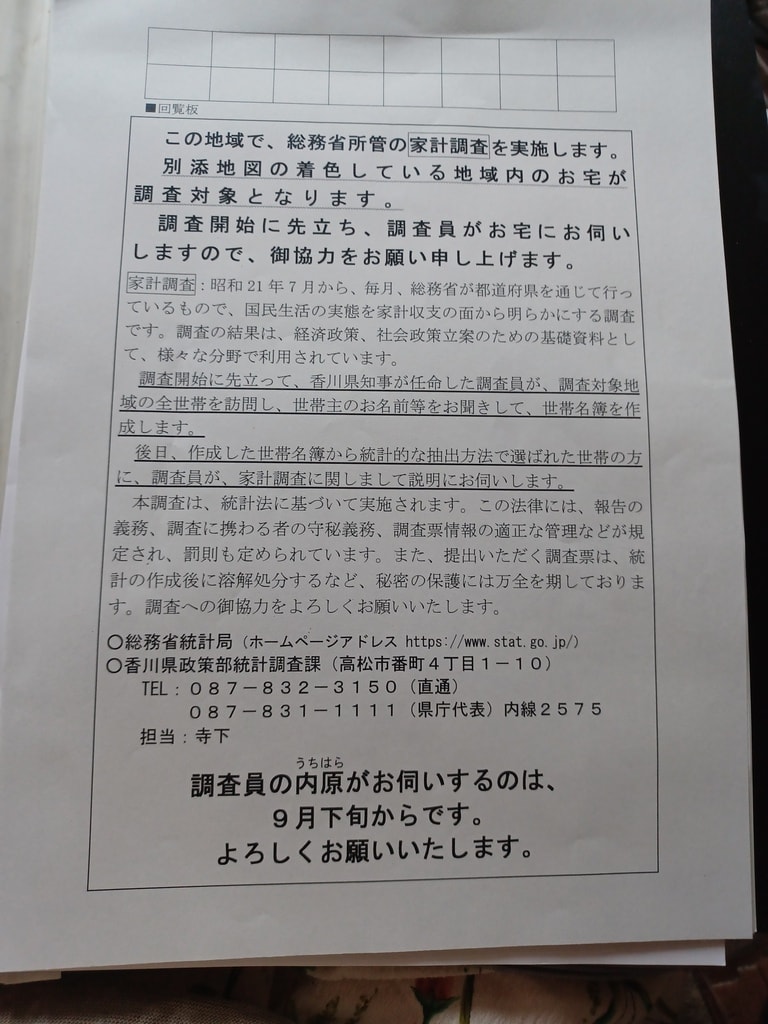 ■回覧板
この地域で、総務省所管の家計調査を実施します。
別添地図の着色している地域内のお宅が
調査対象となります。
調査開始に先立ち、調査員がお宅にお伺い
しますので、御協力をお願い申し上げます。
家計調査：昭和21年7月から、毎月、総務省が都道府県を通じて行っ
ているもので、国民生活の実態を家計収支の面から明らかにする調査
です。調査の結果は、経済政策、社会政策立案のための基礎資料とし
て、様々な分野で利用されています。
調査開始に先立って、香川県知事が任命した調査員が、調査対象地
域の全世帯を訪問し、世帯主のお名前等をお聞きして、世帯名簿を作
成します。
後日、作成した世帯名簿から統計的な抽出方法で選ばれた世帯の方
に、調査員が、家計調査に関しまして説明にお伺いします。
本調査は、統計法に基づいて実施されます。この法律には、報告の
義務、調査に携わる者の守秘義務、調査票情報の適正な管理などが規
定され、罰則も定められています。また、提出いただく調査票は、統
計の作成後に溶解処分するなど、秘密の保護には万全を期しておりま
す。調査への御協力をよろしくお願いいたします。
○総務省統計局（ホームページアドレス https://www.stat.go.jp/）
○香川県政策部統計調査課（高松市番町４丁目１－１０）
TEL：０８７－８３２－３１５０（直通）
０８７－８３１－１１１１（県庁代表）内線２５７５
担当：寺下
うちはら
調査員の内原がお伺いするのは、
９月下旬からです。
よろしくお願いいたします。